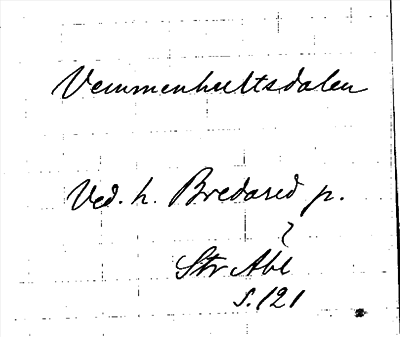 Vemmenhultsdalen
Ved. h. Bredared p.
?
Str Abl
s. 121